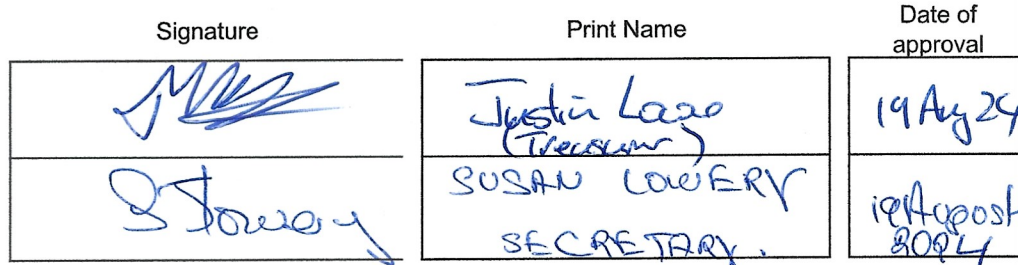 Signature Print Name Date of
approval
Justin
(Treasurer) 19 Aug 24
SUSAN LOWERY
SECRETARY. 19 August
2024